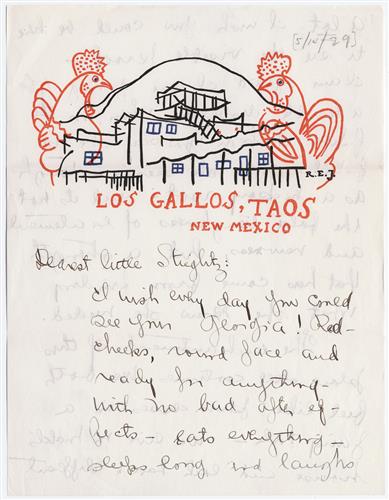 [5/10/29]
R.E.J.
LOS GALLOS, TAOS
NEW MEXICO
Dearest little Stieglitz:
I wish every day you could
see your Georgia! Red-
cheeks, round face and
ready for anything-
with no bad after ef-
fects- eats everything-
sleeps long and laughs